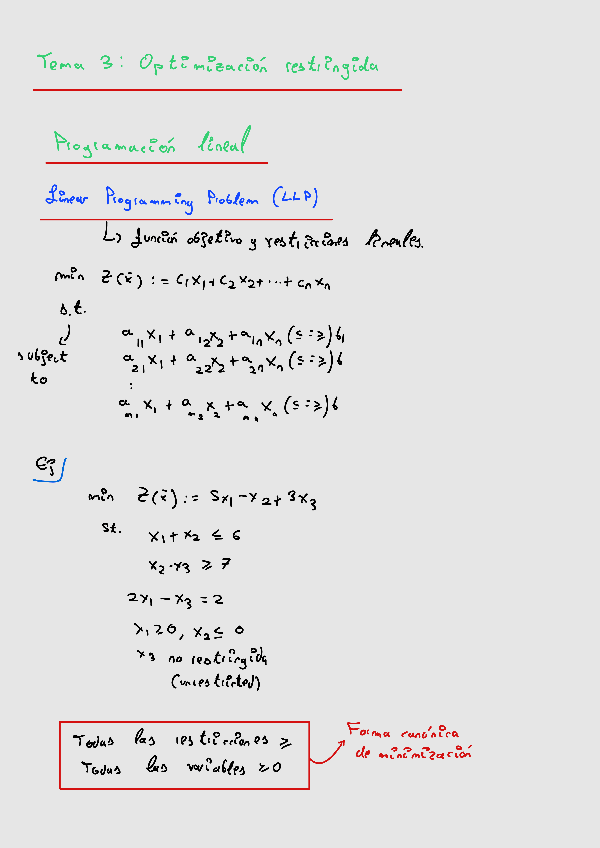 Tema 3: Optimización restringida
Programación lineal
Linear Programming Problem (LLP)
↳ función objetivo y restricciones lineales.
min Z(x̄) := C₁x₁ + C₂x₂ + ... + Cₙxₙ
s.t.
subject
to
a₁₁x₁ + a₁₂x₂ + a₁ₙxₙ (≤ = ≥) b₁
a₂₁x₁ + a₂₂x₂ + a₂ₙxₙ (≤ = ≥) b
:
aₘ₁x₁ + aₘ₂x₂ + aₘₙxₙ (≤ = ≥) b
Ej
min Z(x̄) := 5x₁ - x₂ + 3x₃
st.
x₁ + x₂ ≤ 6
x₂ - x₃ ≥ 7
2x₁ - x₃ = 2
x₁ ≥ 0, x₂ ≤ 0
x₃ no restringida
(unrestricted)
Todas las restricciones ≥
Todas las variables ≥ 0
Forma canónica
de minimización